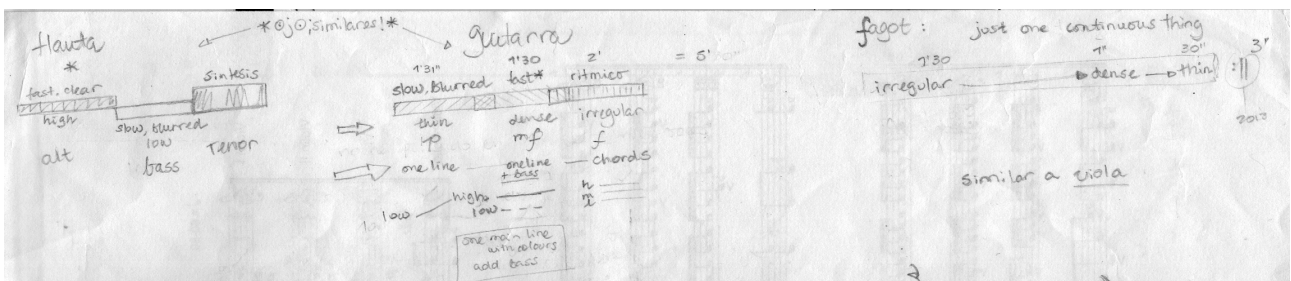 *ojo; similares!*
flauta
*
fast, clear
high
alt
slow, blurred
low
bass
sintesis
Tenor
guitarra
1'31" 1'30 2' = 5'
slow, blurred fast* ritmico
thin dense irregular
p mf f
one line — one line + bass — chords
low high
low
h
m
l
one main line
with colours
add bass
fagot: just one continuous thing
1'30 1" 30" 3"
irregular dense thin :||
2013
similar a viola